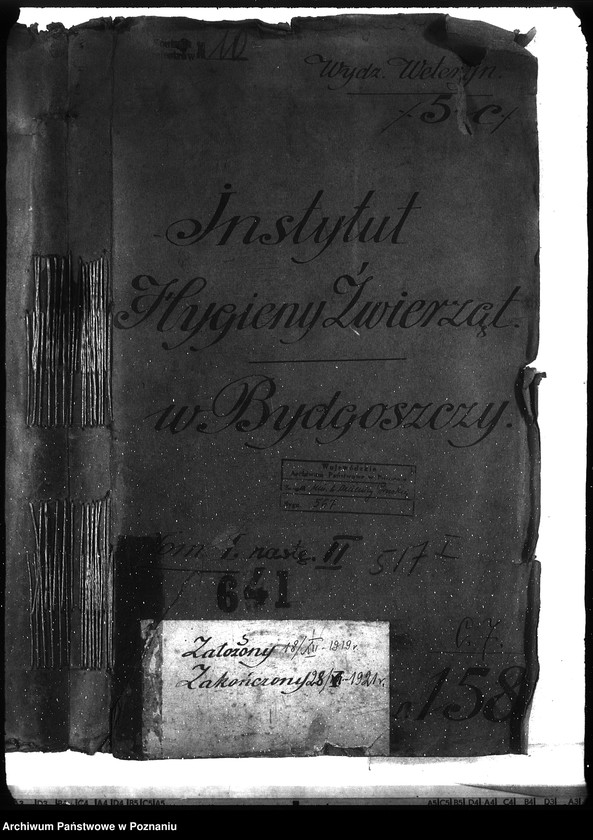 10
Wydz. Weteryn.
/5 c/
Instytut
Hygieny Źwierząt.
w Bydgoszczy.
Wojewódzkie
Archiwum Państwowe w Poznaniu
Tom I. nastę. II 517 I
641
C.7.
Założony 18/XII-1919 r.
Zakończony 28/-1921 r.
158
Archiwum Państwowe w Poznaniu